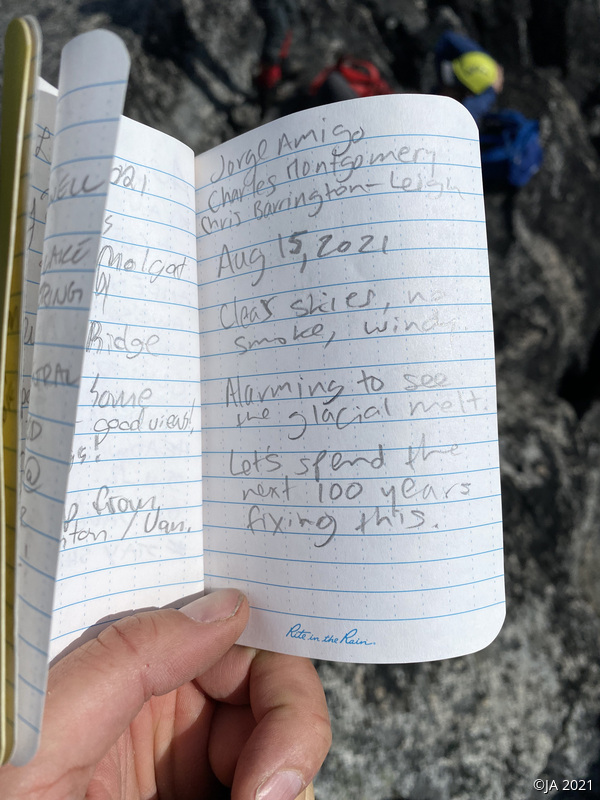 ELL
AKE
RING
TRAIL
021
s
Molgat
Ridge
Some
good views,
is!
from
/ Van.
Jorge Amigo
Charles Montgomery
Chris Barrington-Leigh
Aug 15, 2021
Clear skies, no
smoke, windy.
Alarming to see
the glacial melt.
Let's spend the
next 100 years
fixing this.
Rite in the Rain
©JA 2021